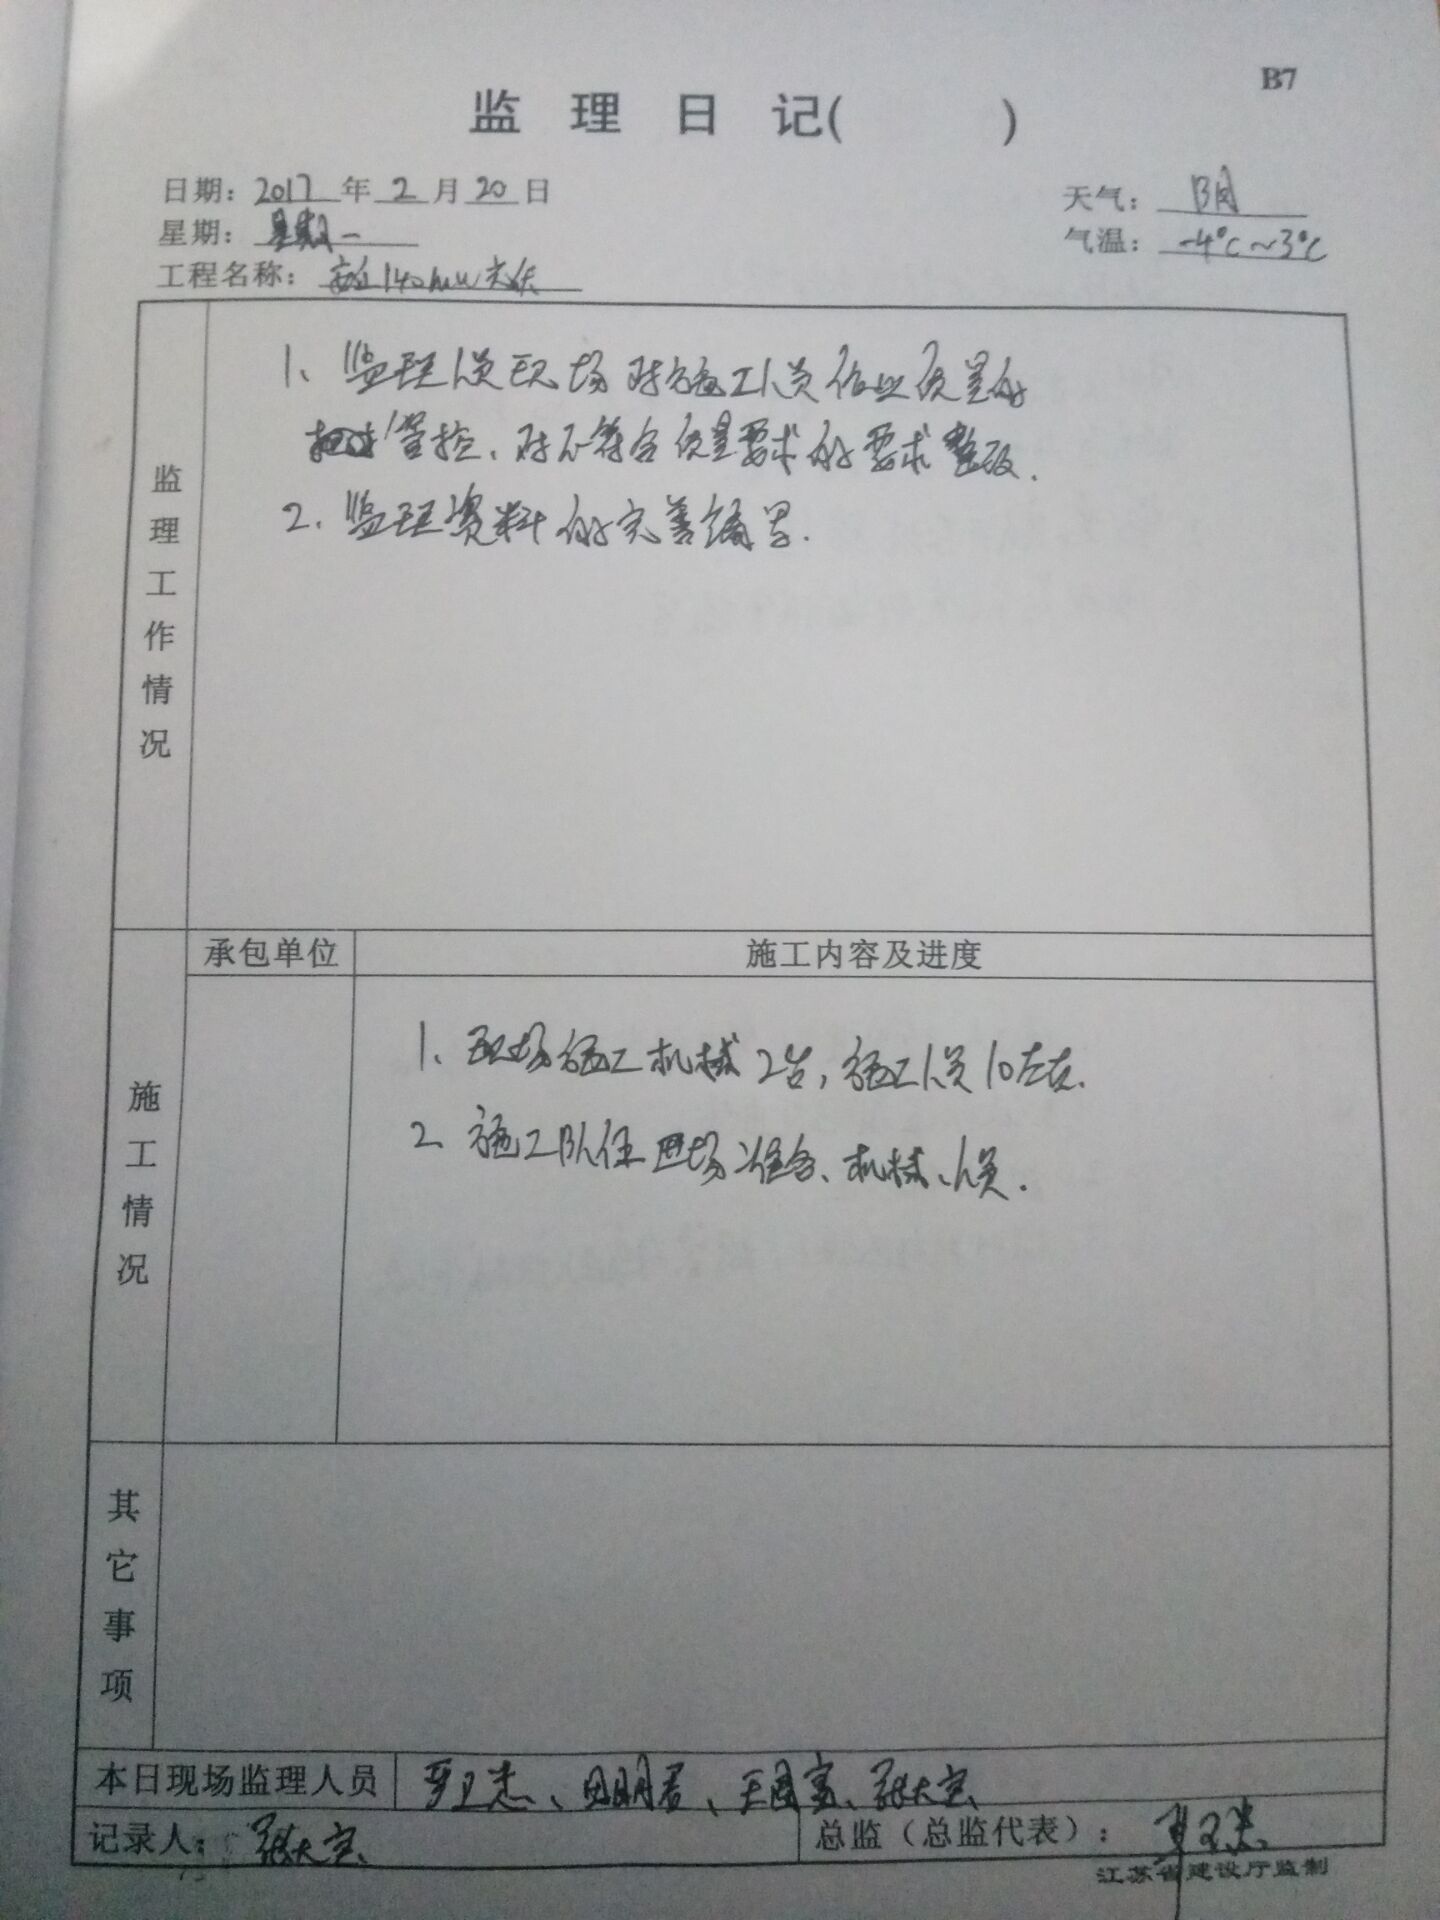 B7
监 理 日 记( )
日期：2017年2月20日
天气：阴
星期：星期一
气温：-4℃~3℃
工程名称：140MW光伏
监理工作情况
1、监理人员现场对施工人员作业质量的
管控、对不符合质量要求的要求整改.
2、监理资料的完善编写.
承包单位
施工内容及进度
施工情况
1、现场施工机械2台，施工人员10左右.
2、施工队伍进场准备、机械、人员.
其它事项
本日现场监理人员
记录人：张大宝
总监（总监代表）：
江苏省建设厅监制